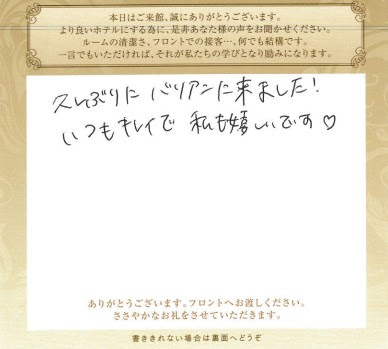 本日はご来館、誠にありがとうございます。
より良いホテルにする為に、是非あなた様の声をお聞かせください。
ルームの清潔さ、フロントでの接客…、何でも結構です。
一言でもいただければ、それが私たちの学びとなり励みになります。
久しぶりに バリアンに来ました!
いつもキレイで 私も嬉しいです♡
ありがとうございます。フロントへお渡しください。
ささやかなお礼をさせていただきます。
書ききれない場合は裏面へどうぞ